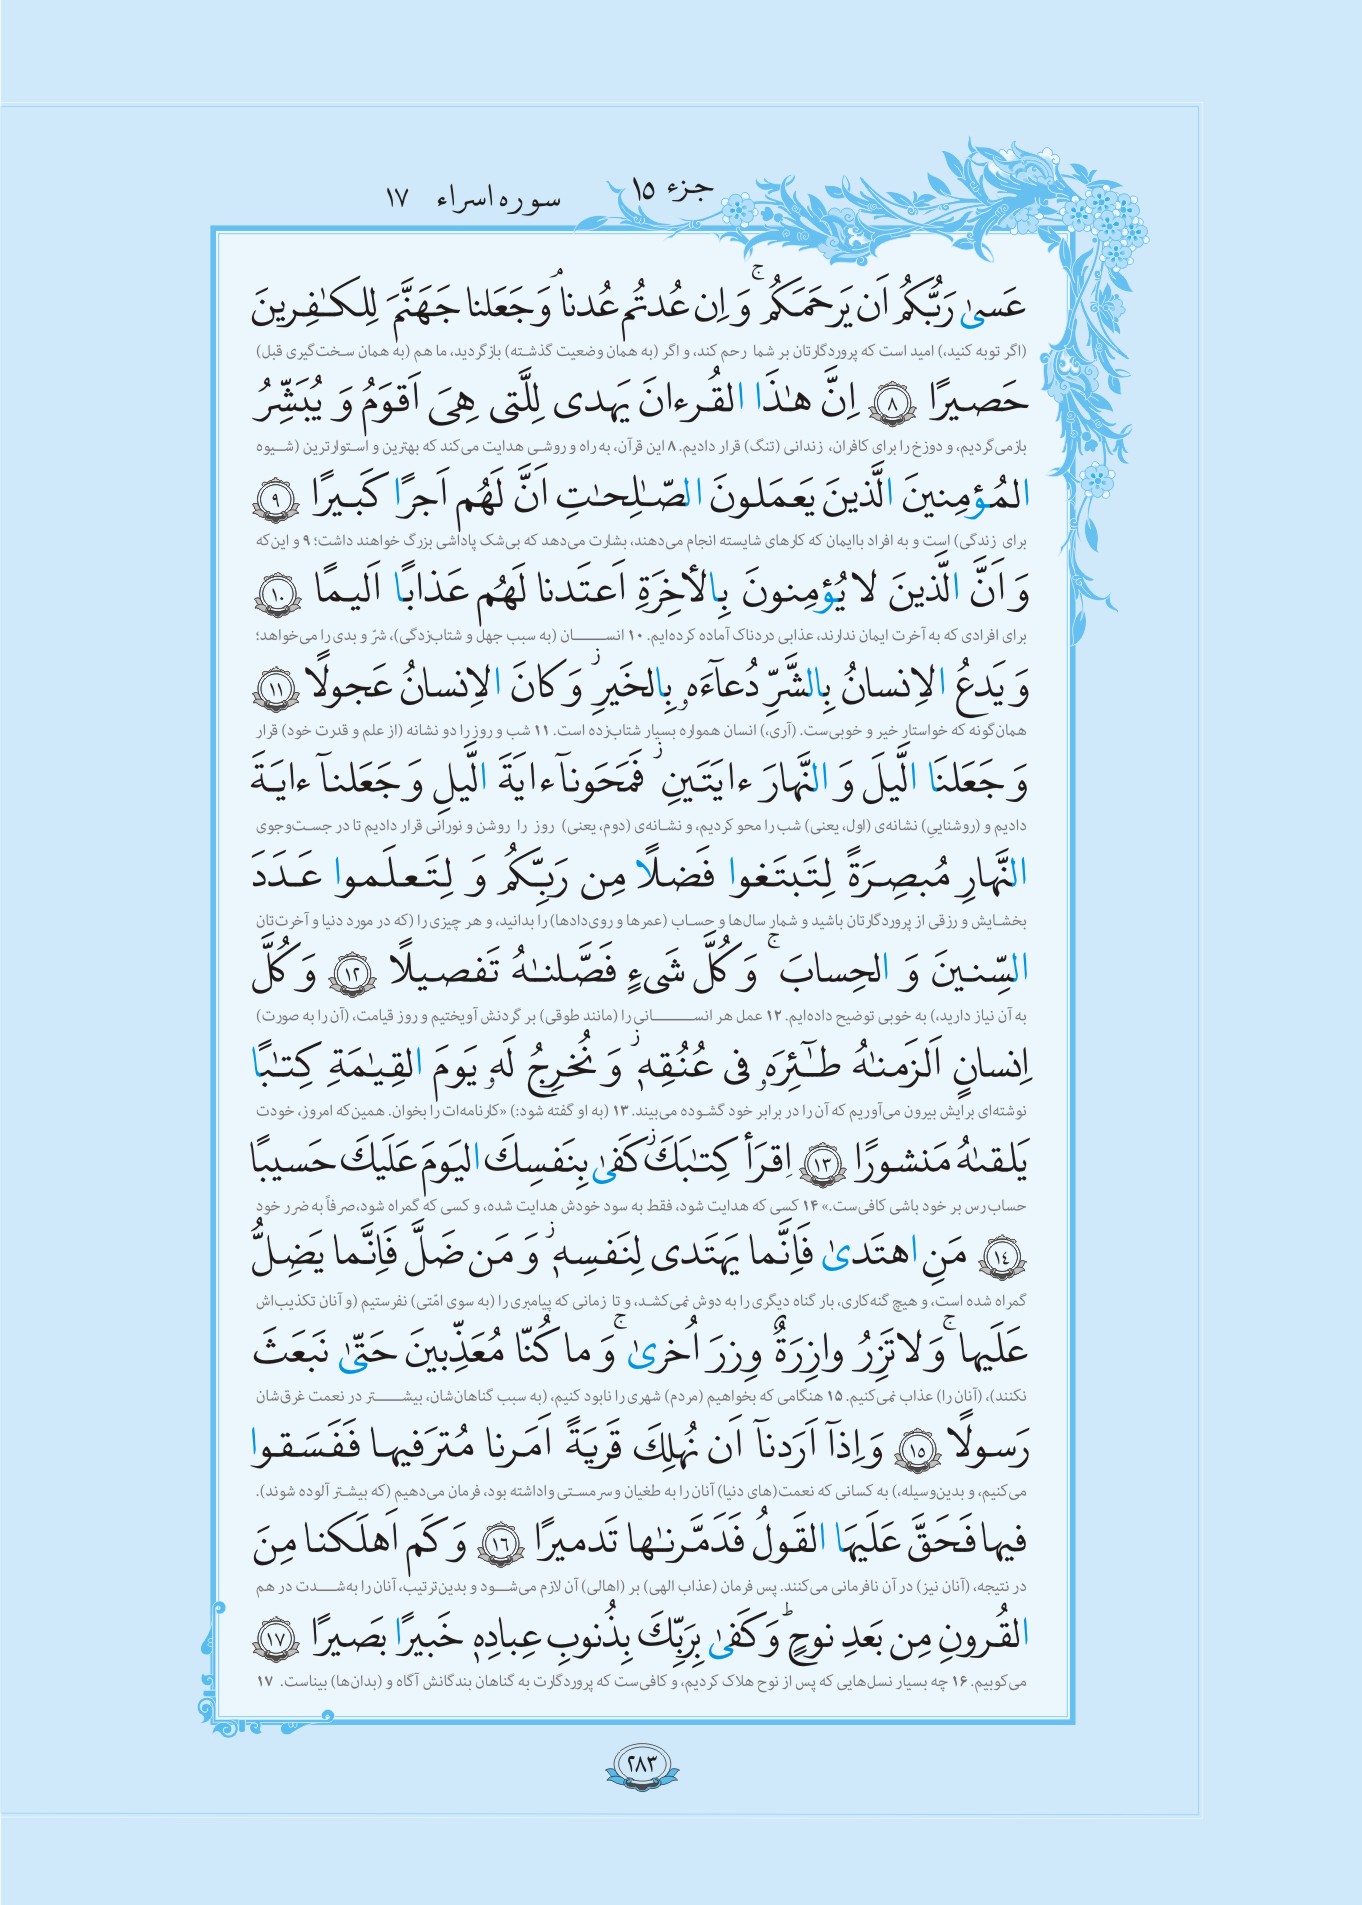 جزء ۱۵
سوره اسراء ۱۷
عَسىٰ رَبُّكُم اَن يَرحَمَكُم ۚ وَ اِن عُدتُم عُدنا ۘ وَ جَعَلنا جَهَنَّمَ لِلكـٰفِرينَ
(اگر توبه کنید،) امید است که پروردگارتان بر شما رحم کند، و اگر (به همان وضعیت گذشته) بازگردید، ما هم (به همان سخت‌گیری قبل)
حَصيرًا ﴿٨﴾ اِنَّ هـٰذَا القُرءانَ يَهدى لِلَّتى هِىَ اَقوَمُ وَ يُبَشِّرُ
بازمی‌گردیم، و دوزخ را برای کافران، زندانی (تنگ) قرار دادیم. ۸ این قرآن، به راه و روشی هدایت می‌کند که بهترین و استوارترین (شیوه
المُؤمِنينَ الَّذينَ يَعمَلونَ الصّـٰلِحـٰتِ اَنَّ لَهُم اَجرًا كَبيرًا ﴿٩﴾
برای زندگی) است و به افراد باایمان که کارهای شایسته انجام می‌دهند، بشارت می‌دهد که بی‌شک پاداشی بزرگ خواهند داشت؛ ۹ و این‌که
وَ اَنَّ الَّذينَ لا يُؤمِنونَ بِالأخِرَةِ اَعتَدنا لَهُم عَذابًا اَليمًا ﴿١٠﴾
برای افرادی که به آخرت ایمان ندارند، عذابی دردناک آماده کرده‌ایم. ۱۰ انسان (به سبب جهل و شتاب‌زدگی)، شرّ و بدی را می‌خواهد؛
وَ يَدعُ الاِنسانُ بِالشَّرِّ دُعآءَهۥ بِالخَيرِ ز وَ كانَ الاِنسانُ عَجولًا ﴿١١﴾
همان‌گونه که خواستار خیر و خوبی‌ست. (آری،) انسان همواره بسیار شتاب‌زده است. ۱۱ شب و روز را دو نشانه (از علم و قدرت خود) قرار
وَ جَعَلنَا الَّيلَ وَ النَّهارَ ءايَتَينِ ز فَمَحَونآ ءايَةَ الَّيلِ وَ جَعَلنآ ءايَةَ
دادیم و (روشناییِ) نشانه‌ی (اول، یعنی) شب را محو کردیم، و نشانه‌ی (دوم، یعنی) روز را روشن و نورانی قرار دادیم تا در جست‌وجوی
النَّهارِ مُبصِرَةً لِتَبتَغوا فَضلًا مِن رَبِّكُم وَ لِتَعلَموا عَدَدَ
بخشایش و رزقی از پروردگارتان باشید و شمار سال‌ها و حساب (عمرها و روی‌دادها) را بدانید، و هر چیزی را (که در مورد دنیا و آخرت‌تان
السِّنينَ وَ الحِسابَ ۚ وَ كُلَّ شَىءٍ فَصَّلنـٰهُ تَفصيلًا ﴿١٢﴾ وَ كُلَّ
به آن نیاز دارید،) به خوبی توضیح داده‌ایم. ۱۲ عمل هر انسانی را (مانند طوقی) بر گردنش آویختیم و روز قیامت، (آن را به صورت)
اِنسانٍ اَلزَمنـٰهُ طـٰٓئِرَهۥ فى عُنُقِهٖ ز وَ نُخرِجُ لَهۥ يَومَ القِيـٰمَةِ كِتـٰبًا
نوشته‌ای برایش بیرون می‌آوریم که آن را در برابر خود گشوده می‌بیند. ۱۳ (به او گفته شود:) «کارنامه‌ات را بخوان. همین‌که امروز، خودت
يَلقىٰهُ مَنشورًا ﴿١٣﴾ اِقرَأ كِتـٰبَكَ ز كَفىٰ بِنَفسِكَ اليَومَ عَلَيكَ حَسيبًا
حساب‌رس بر خود باشی کافی‌ست.» ۱۴ کسی که هدایت شود، فقط به سود خودش هدایت شده، و کسی که گمراه شود،صرفاً به ضرر خود
﴿١٤﴾ مَنِ اهتَدىٰ فَاِنَّما يَهتَدى لِنَفسِهٖ ز وَ مَن ضَلَّ فَاِنَّما يَضِلُّ
گمراه شده است، و هیچ گنه‌کاری، بار گناه دیگری را به دوش نمی‌کشد، و تا زمانی که پیامبری را (به سوی امّتی) نفرستیم (و آنان تکذیب‌اش
عَلَيها ۚ وَ لا تَزِرُ وازِرَةٌ وِزرَ اُخرىٰ ۚ وَ ما كُنّا مُعَذِّبينَ حَتّىٰ نَبعَثَ
نکنند)، (آنان را) عذاب نمی‌کنیم. ۱۵ هنگامی که بخواهیم (مردم) شهری را نابود کنیم، (به سبب گناهان‌شان، بیشتر در نعمت غرق‌شان
رَسولًا ﴿١٥﴾ وَ اِذآ اَرَدنآ اَن نُهلِكَ قَريَةً اَمَرنا مُترَفيها فَفَسَقوا
می‌کنیم، و بدین‌وسیله،) به کسانی که نعمت(های دنیا) آنان را به طغیان و سرمستی واداشته بود، فرمان می‌دهیم (که بیشتر آلوده شوند).
فيها فَحَقَّ عَلَيهَا القَولُ فَدَمَّرنـٰها تَدميرًا ﴿١٦﴾ وَ كَم اَهلَكنا مِنَ
در نتیجه، (آنان نیز) در آن نافرمانی می‌کنند. پس فرمان (عذاب الهی) بر (اهالی) آن لازم می‌شود و بدین‌ترتیب، آنان را به‌شدت در هم
القُرونِ مِن بَعدِ نوحٍ ؕ وَ كَفىٰ بِرَبِّكَ بِذُنوبِ عِبادِهٖ خَبيرًا بَصيرًا ﴿١٧﴾
می‌کوبیم. ۱۶ چه بسیار نسل‌هایی که پس از نوح هلاک کردیم، و کافی‌ست که پروردگارت به گناهان بندگانش آگاه و (بدان‌ها) بیناست. ۱۷
۲۸۳